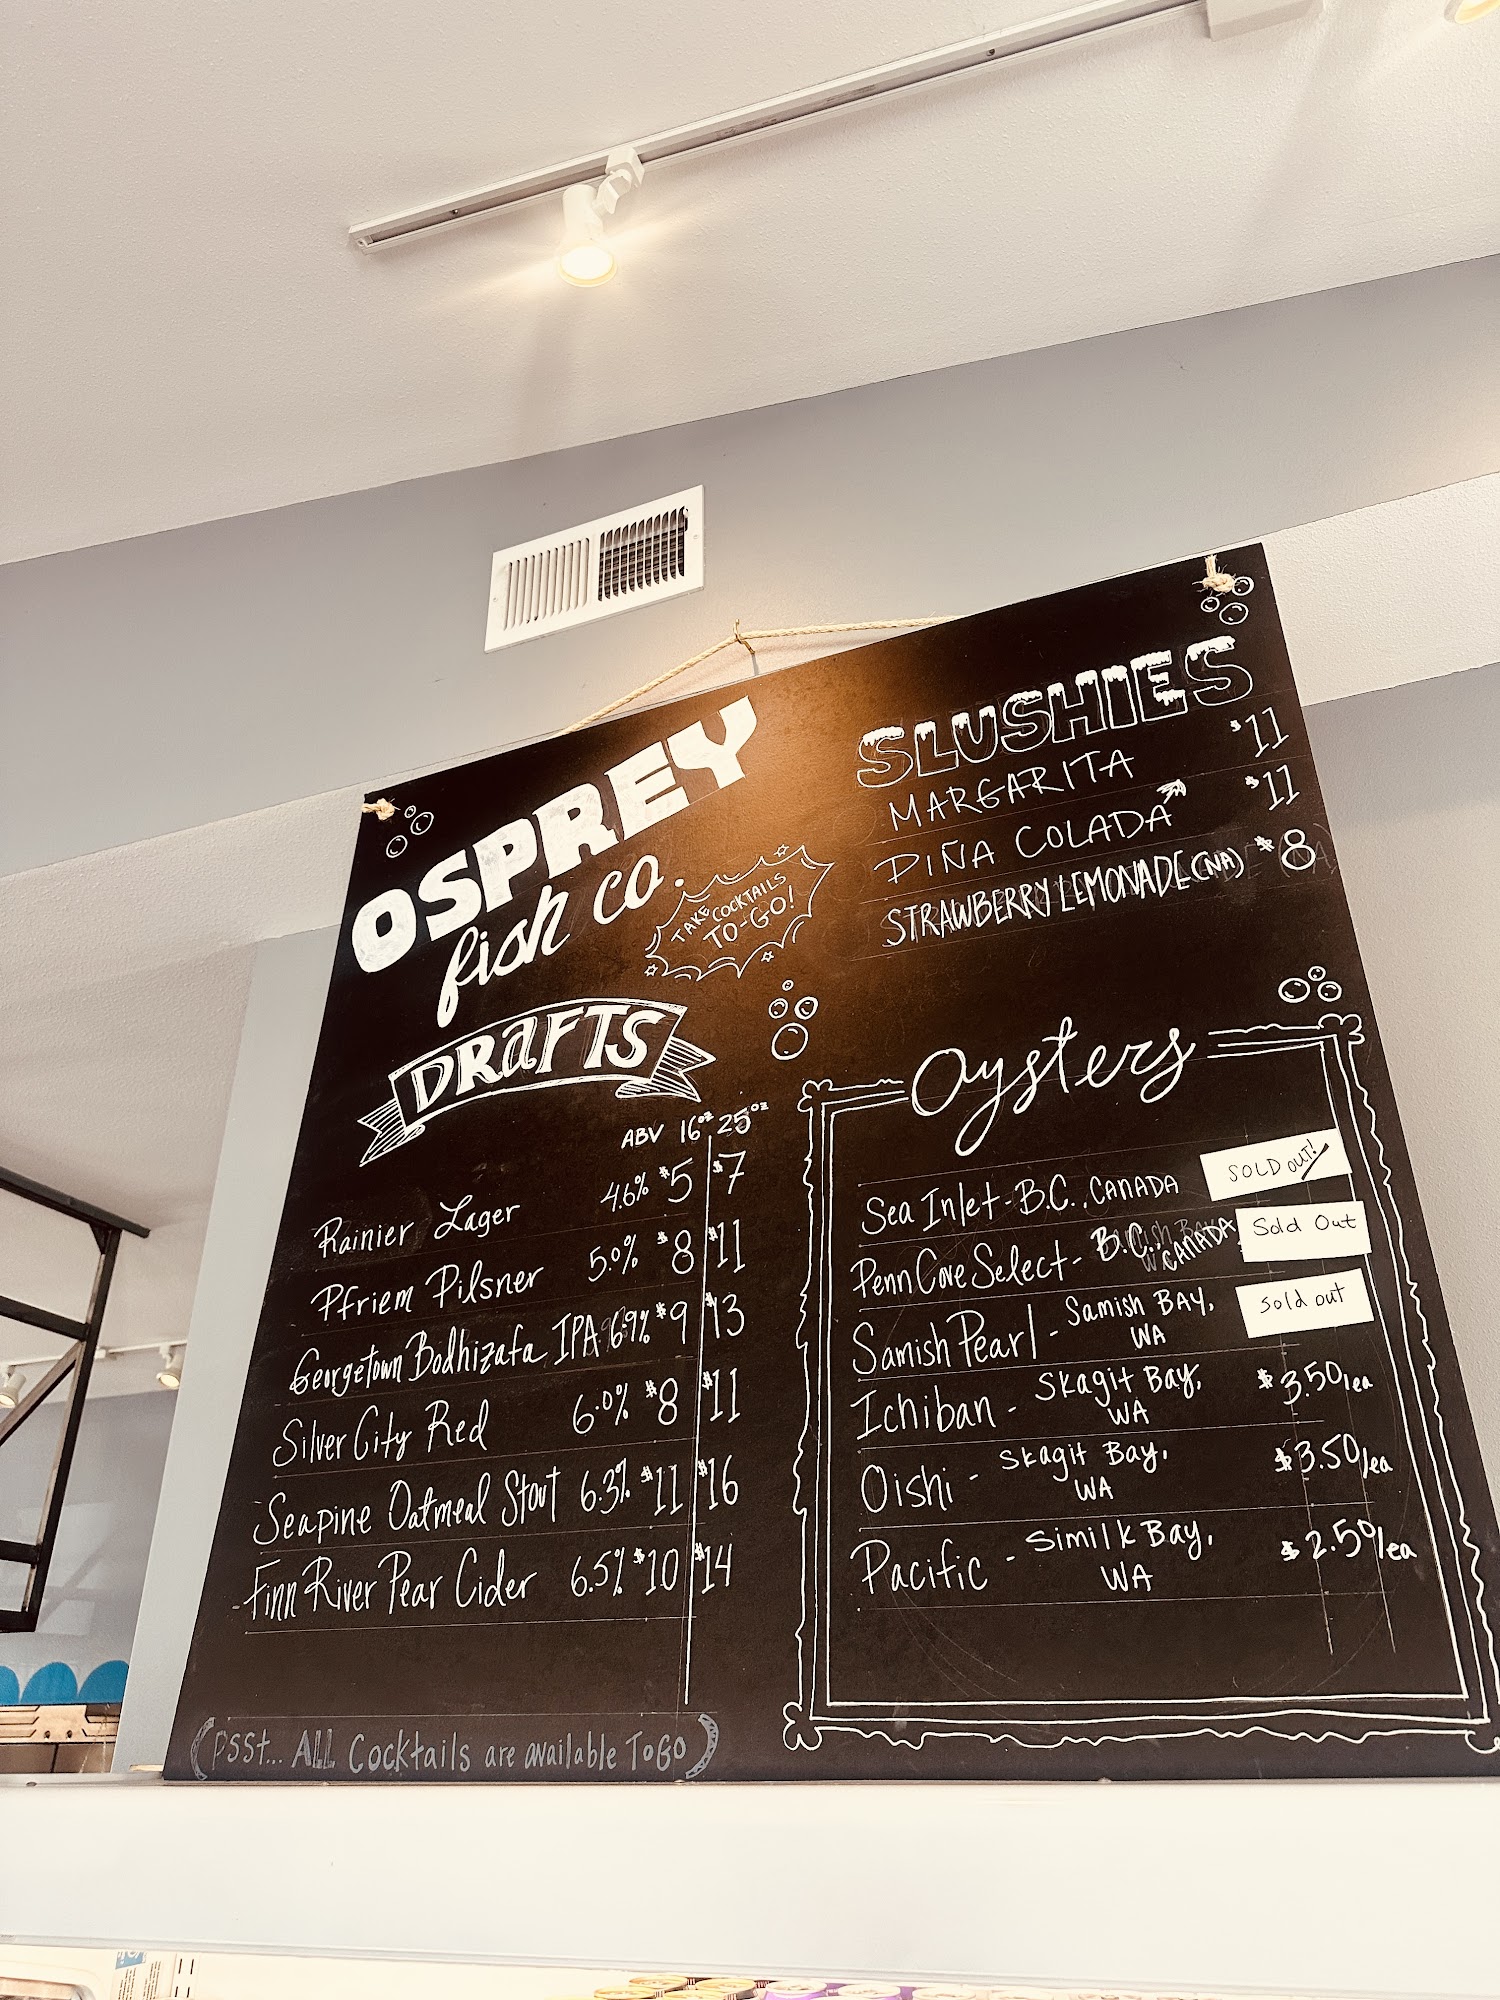 OSPREY
fish co.
TAKE
COCKTAILS
TO-GO!
DRAFTS
ABV 16oz 25oz
Rainier Lager 4.6% $5 $7
Pfriem Pilsner 5.0% $8 $11
Georgetown Bodhizafa IPA 6.9% $9 $13
Silver City Red 6.0% $8 $11
Seapine Oatmeal Stout 6.3% $11 $16
Finn River Pear Cider 6.5% $10 $14
(psst... ALL Cocktails are available ToGo)
SLUSHIES
MARGARITA $11
PIÑA COLADA $11
STRAWBERRY LEMONADE (NA) $8
Oysters
Sea Inlet - B.C., CANADA SOLD OUT!
Penn Cove Select - B.C., CANADA Sold Out
Samish Pearl - Samish BAY, WA sold out
Ichiban - Skagit Bay, WA $3.50/ea
Oishi - Skagit Bay, WA $3.50/ea
Pacific - Similk Bay, WA $2.50/ea